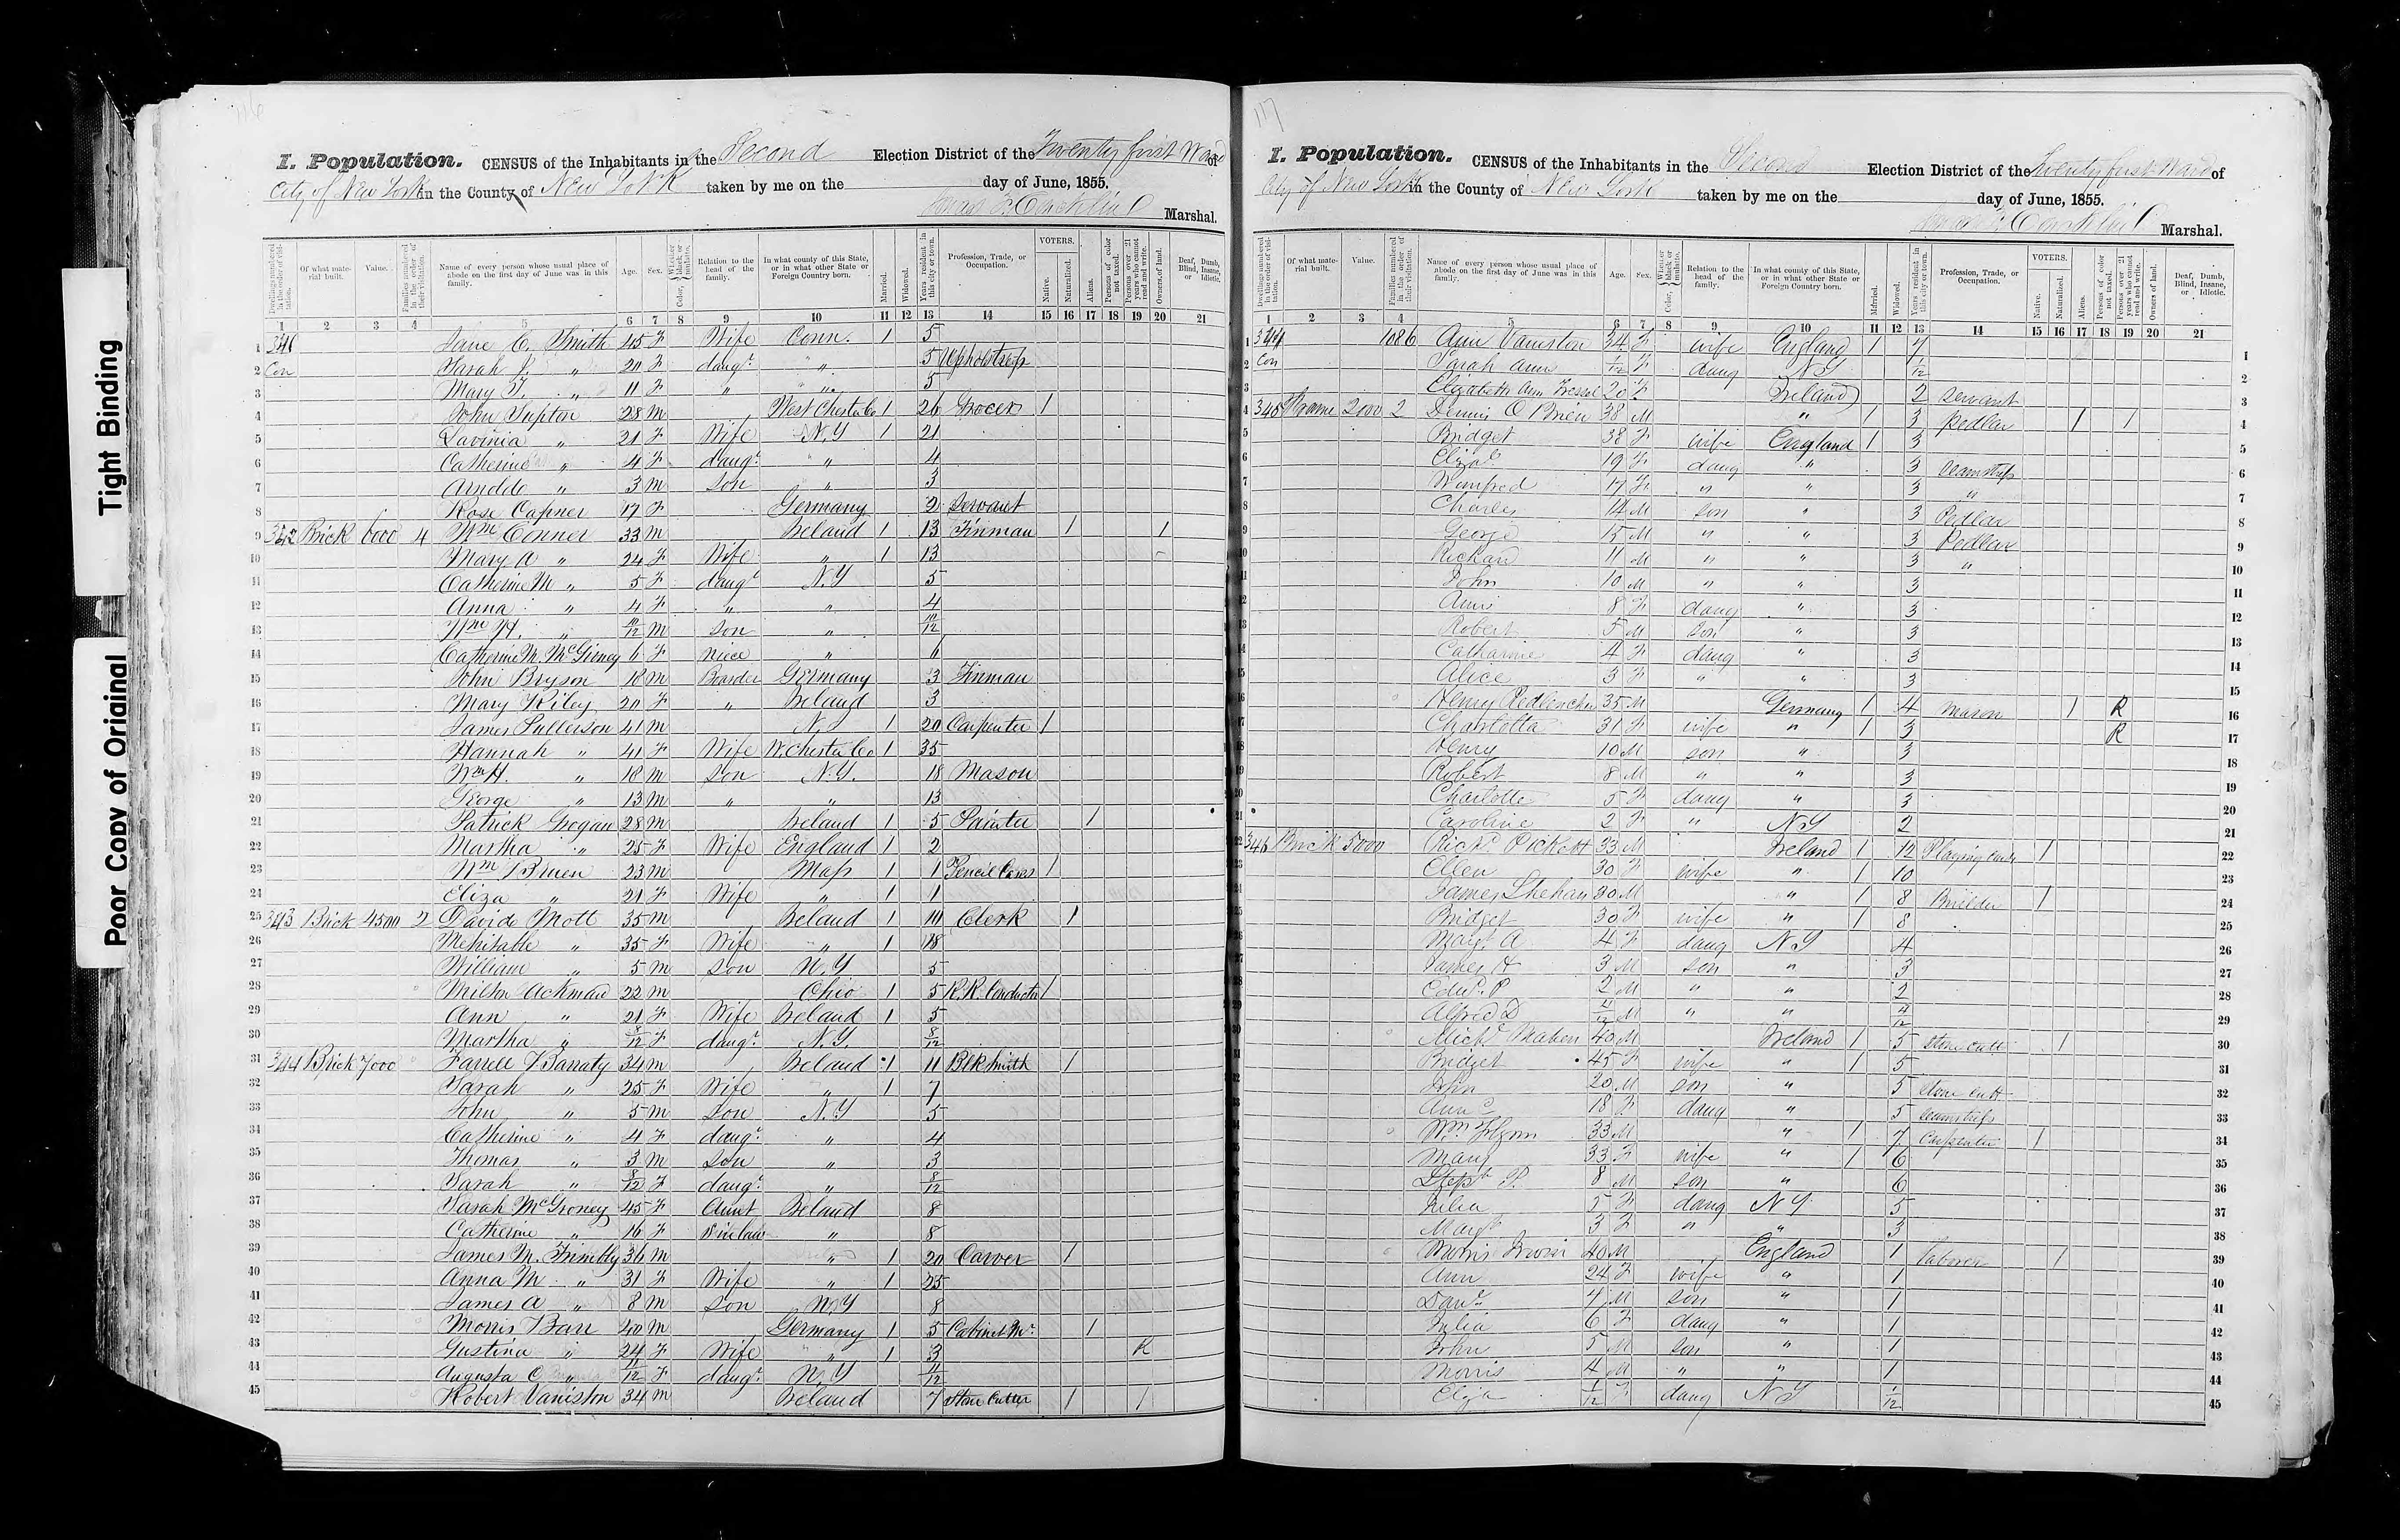 Tight Binding
Poor Copy of Original
116
I. Population. CENSUS of the Inhabitants in the Second Election District of the Twenty first Ward of
City of New York in the County of New York taken by me on the day of June, 1855.
Marshal.
Dwellings numbered in the order of visitation. Of what material built. Value. Families numbered in the order of their visitation. Name of every person whose usual place of abode on the first day of June was in this family. Age. Sex. Color, Whether black or mulatto. Relation to the head of the family. In what county of this State, or in what other State or Foreign Country born. Married. Widowed. Years resident in this city or town. Profession, Trade, or Occupation. VOTERS. Native. Naturalized. Aliens. Persons of color not taxed. Persons over 21 years who cannot read and write. Owners of land. Deaf, Dumb, Blind, Insane, or Idiotic.
1 2 3 4 5 6 7 8 9 10 11 12 13 14 15 16 17 18 19 20 21
1 341 Jane C. Smith 45 F Wife Conn. 1 5
2 Con Sarah J. " 20 F daugr. " 5 Upholstress
3 Mary F. " 11 F " " 5
4 John Tupton 28 m West Chester Co 1 26 Grocer 1
5 Lavinia " 21 F Wife N.Y 1 21
6 Catherine " 4 F daugr. " 4
7 " 3 m Son " 3
8 Rose Capner 17 F Germany 2 Servant
9 342 Brick 6000 4 Wm Conner 33 m Ireland 1 13 Tinman 1 1
10 Mary A " 24 F Wife " 1 13
11 Catherine M " 5 F daugr N.Y 5
12 Anna " 4 F " " 4
13 Wm H. " 10/12 m Son " 10/12
14 Catherine M. McGirney 6 F niece " 6
15 John Bryson 18 m Boarder Germany 3 Tinman
16 Mary Riley 20 F " Ireland 3
17 James Pullerson 41 m N.J 1 20 Carpenter 1
18 Hannah " 41 F Wife W. Chester Co 1 35
19 Wm H. " 18 m Son N.Y. 18 Mason
20 George " 13 m " " 13
21 Patrick Grogan 28 m Ireland 1 5 Painter 1
22 Martha " 25 F Wife England 1 2
23 Wm Bruen 23 m Mass 1 1 Pencil Cases 1
24 Eliza " 21 F Wife " 1 1
25 343 Brick 4500 2 David Mott 35 m Ireland 1 10 Clerk 1
26 Mehitable " 35 F Wife " 1 18
27 William " 5 m Son N.Y 5
28 Milton Ackman 22 m Ohio 1 5 R.R. Conductor 1
29 Ann " 21 F Wife Ireland 1 5
30 Martha " 8/12 F daugr. N.Y. 8/12
31 344 Brick 7000 Farrell Banaty 34 m Ireland 1 11 Blk Smith 1
32 Sarah " 25 F Wife " 1 7
33 John " 5 m Son N.Y 5
34 Catherine " 4 F daugr. " 4
35 Thomas " 3 m Son " 3
36 Sarah " 8/12 F daugr. " 8/12
37 Sarah McGroney 45 F Aunt Ireland 8
38 Catherine " 16 F " 8
39 James M. Trimbly 36 m " 1 20 Carver 1
40 Anna M " 31 F Wife " 1 25
41 James A " 8 m Son N.Y 8
42 Morris Barr 40 m Germany 1 5 Cabinet Mr. 1
43 Gustina " 24 F Wife " 1 3 R
44 Augusta C " 11/12 F daugr. N.Y 11/12
45 Robert Vaniston 34 m Ireland 7 Stone Cutter 1 1
117
I. Population. CENSUS of the Inhabitants in the Second Election District of the Twenty first Ward of
City of New York in the County of New York taken by me on the day of June, 1855.
Marshal.
Dwellings numbered in the order of visitation. Of what material built. Value. Families numbered in the order of their visitation. Name of every person whose usual place of abode on the first day of June was in this family. Age. Sex. Color, Whether black or mulatto. Relation to the head of the family. In what county of this State, or in what other State or Foreign Country born. Married. Widowed. Years resident in this city or town. Profession, Trade, or Occupation. VOTERS. Native. Naturalized. Aliens. Persons of color not taxed. Persons over 21 years who cannot read and write. Owners of land. Deaf, Dumb, Blind, Insane, or Idiotic.
1 2 3 4 5 6 7 8 9 10 11 12 13 14 15 16 17 18 19 20 21
1 344 1086 Ann Vaniston 34 F wife England 1 7 1
2 Con Sarah Ann 1/12 F daug NY 1/12 2
3 Elizabeth Ann 20 F Ireland 2 Servant 3
4 345 Frame 2000 2 Dennis O Brien 38 M " 1 3 Pedlar 1 1 4
5 Bridget 38 F wife England 1 3 5
6 Elizah 19 F daug " 3 Seamstress 6
7 Winifred 17 F " " 3 " 7
8 Charles 14 M son " 3 Pedlar 8
9 George 15 M " " 3 Pedlar 9
10 Richard 11 M " " 3 " 10
11 John 10 M " " 3 11
12 Ann 8 F daug " 3 12
13 Robert 5 M son " 3 13
14 Catharine 4 F daug " 3 14
15 Alice 3 F " " 3 15
16 Henry 35 M Germany 1 4 Mason 1 R 16
17 Charlotta 31 F wife " 1 3 R 17
18 Henry 10 M son " 3 18
19 Robert 8 M " " 3 19
20 Charlotte 5 F daug " 3 20
21 Caroline 2 F " NY 2 21
22 346 Brick 5000 Richd Pickett 33 M Ireland 1 12 Playing Cards 1 22
23 Ellen 30 F wife " 1 10 23
24 James Shehan 30 M " 1 8 Builder 1 24
25 Bridget 30 F wife " 1 8 25
26 Margt A 4 F daug NY 4 26
27 James H 3 M son " 3 27
28 Edwd. P 2 M " " 2 28
29 Alfred D 4/12 M " " 4/12 29
30 Michl Mahen 40 M Ireland 1 5 Stone Cutt 1 30
31 Bridget 45 F wife " 1 5 31
32 John 20 M son " 5 Stone Cutt 32
33 Ann C 18 F daug " 5 Seamstress 33
34 Wm Flynn 33 M " 1 7 Carpenter 1 34
35 Mary 33 F wife " 1 6 35
36 Steph P. 8 M son " 6 36
37 Julia 5 F daug NY 5 37
38 Margt 3 F " " 3 38
39 Morris 40 M England 1 Laborer 1 39
40 Ann 24 F wife " 1 40
41 Danl 7 M son " 1 41
42 Julia 6 F daug " 1 42
43 John 5 M son " 1 43
44 Morris 4 M " " 1 44
45 Eliza 1/12 F daug NY 1/12 45